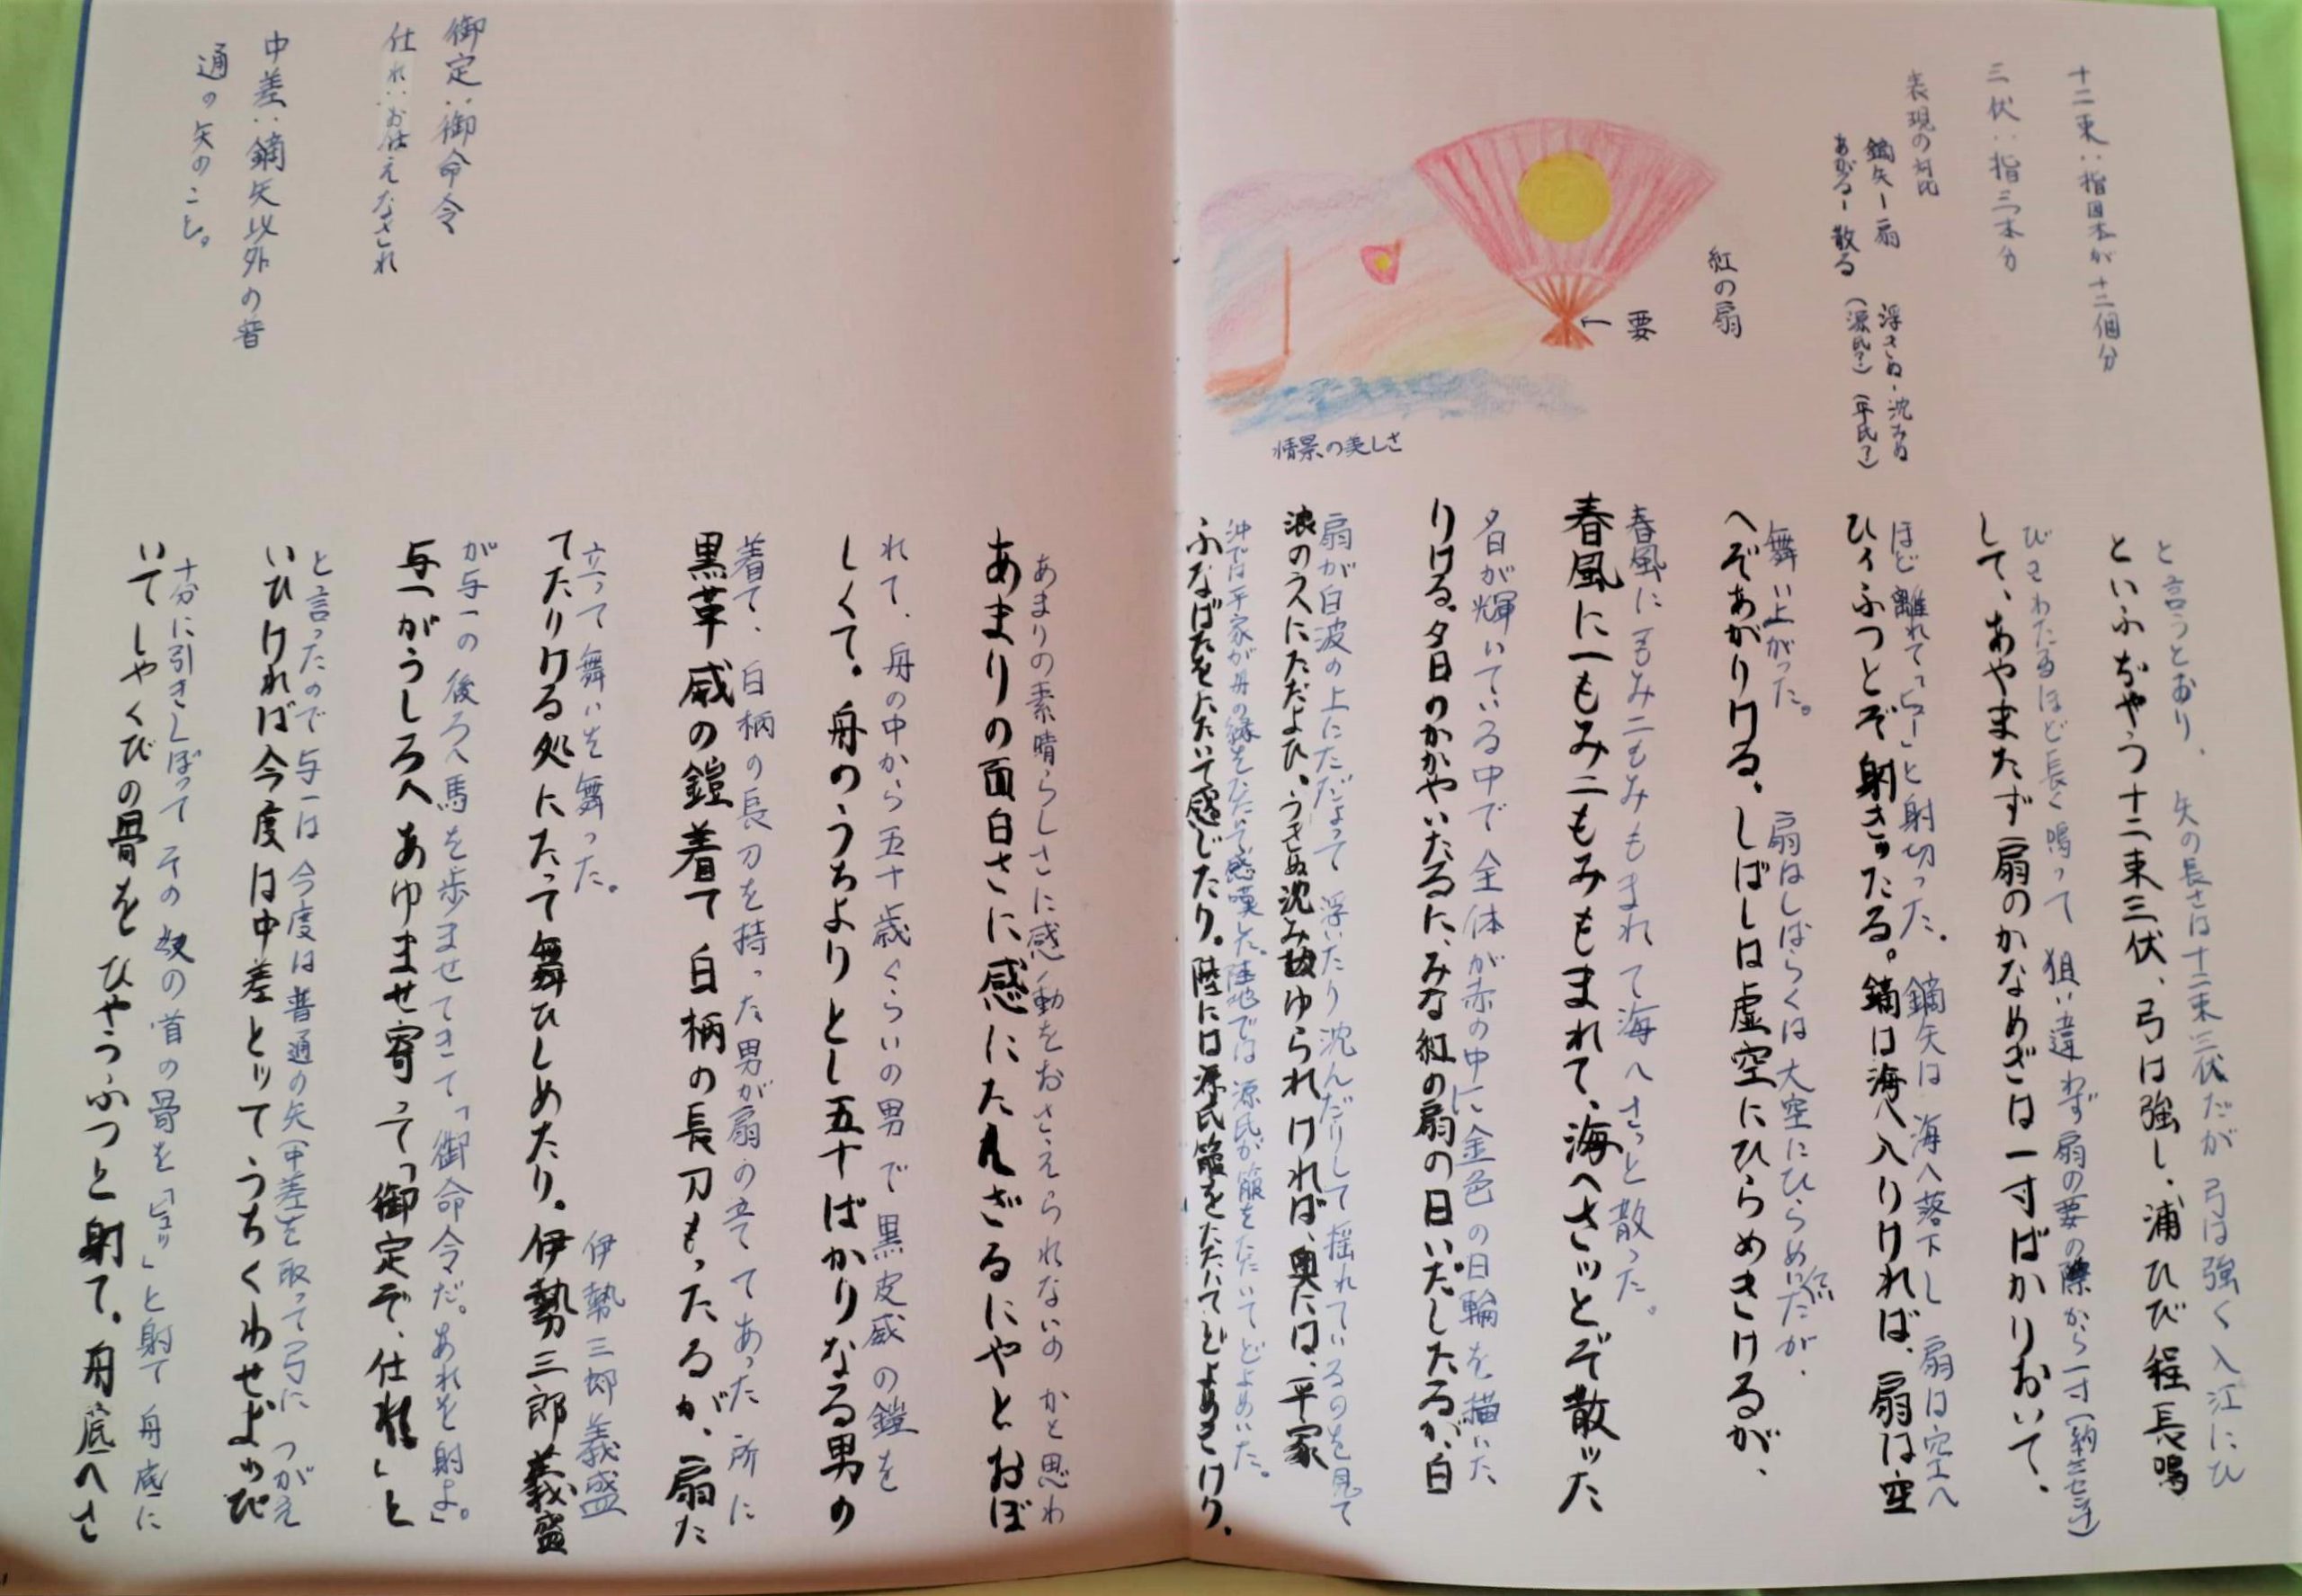 十二束：指四本が十二個分
三伏：指三本分
表現の対比
鏑矢ー扇　浮きぬー沈みぬ
あがるー散る（源氏？）（平氏？）
紅の扇
←要
情景の美しさ
と言うとおり、矢の長さは十二束三伏だが弓は強く入江にひ
といふぢやう十二束三伏、弓は強し、浦ひびく程長鳴
びきわたるほど長く鳴って狙い違わず扇の要の際から一寸（約三センチ）
して、あやまたず扇のかなめぎは一寸ばかりおいて、
ほど離れて「ヒュー」と射切った。鏑矢は海へ落下し扇は空へ
ひィふつとぞ射きッたる。鏑は海へ入りければ、扇は空
舞い上がった。扇はしばらくは大空にひらめいたが、
てい
へぞあがりける。しばしは虚空にひらめきけるが、
春風に一もみ二もみもまれて海へさっと散った。
春風に一もみ二もみもまれて、海へさッとぞ散ッた
夕日が輝いている中で全体が赤の中に金色の日輪を描いた
りける。夕日のかかやいたるに、みな紅の扇の日いだしたるが、白
扇が白波の上にただよって浮いたり沈んだりして揺れているのを見て
浪のうへにただよひ、うきぬ沈みぬゆられければ、奥には、平家
沖では平家が舟の縁をたたいて感嘆した。陸地では源氏が箙をたたいてどよめいた。
ふなばたをたたいて感じたり。陸には源氏箙をたたいてどよめきけり。
御定：御命令
仕れ：お仕えなされ
中差：鏑矢以外の普
通の矢のこと。
あまりの素晴らしさに感動をおさえられないのかと思わ
あまりの面白さに感にたえざるにやとおぼ
れて、舟の中から五十歳ぐらいの男で黒皮威の鎧を
しくて。舟のうちよりとし五十ばかりなる男の
着て、白柄の長刀を持った男が扇の立ててあった所に
黒革威の鎧着て白柄の長刀もったるが、扇た
立って舞いを舞った。伊勢三郎義盛
てたりける処にたって舞ひしめたり。伊勢三郎義盛
が与一の後ろへ馬を歩ませてきて「御命令だ。あれを射よ。」
与一がうしろへあゆませ寄って「御定ぞ、仕れ」と
と言ったので与一は今度は普通の矢（中差）を取って弓につがえ
いひければ今度は中差とッてうちくわせよっぴ
十分に引きしぼってその奴の首の骨を「ヒュッ」と射て舟底に
いてしやくびの骨をひやうふつと射て。舟底へさ